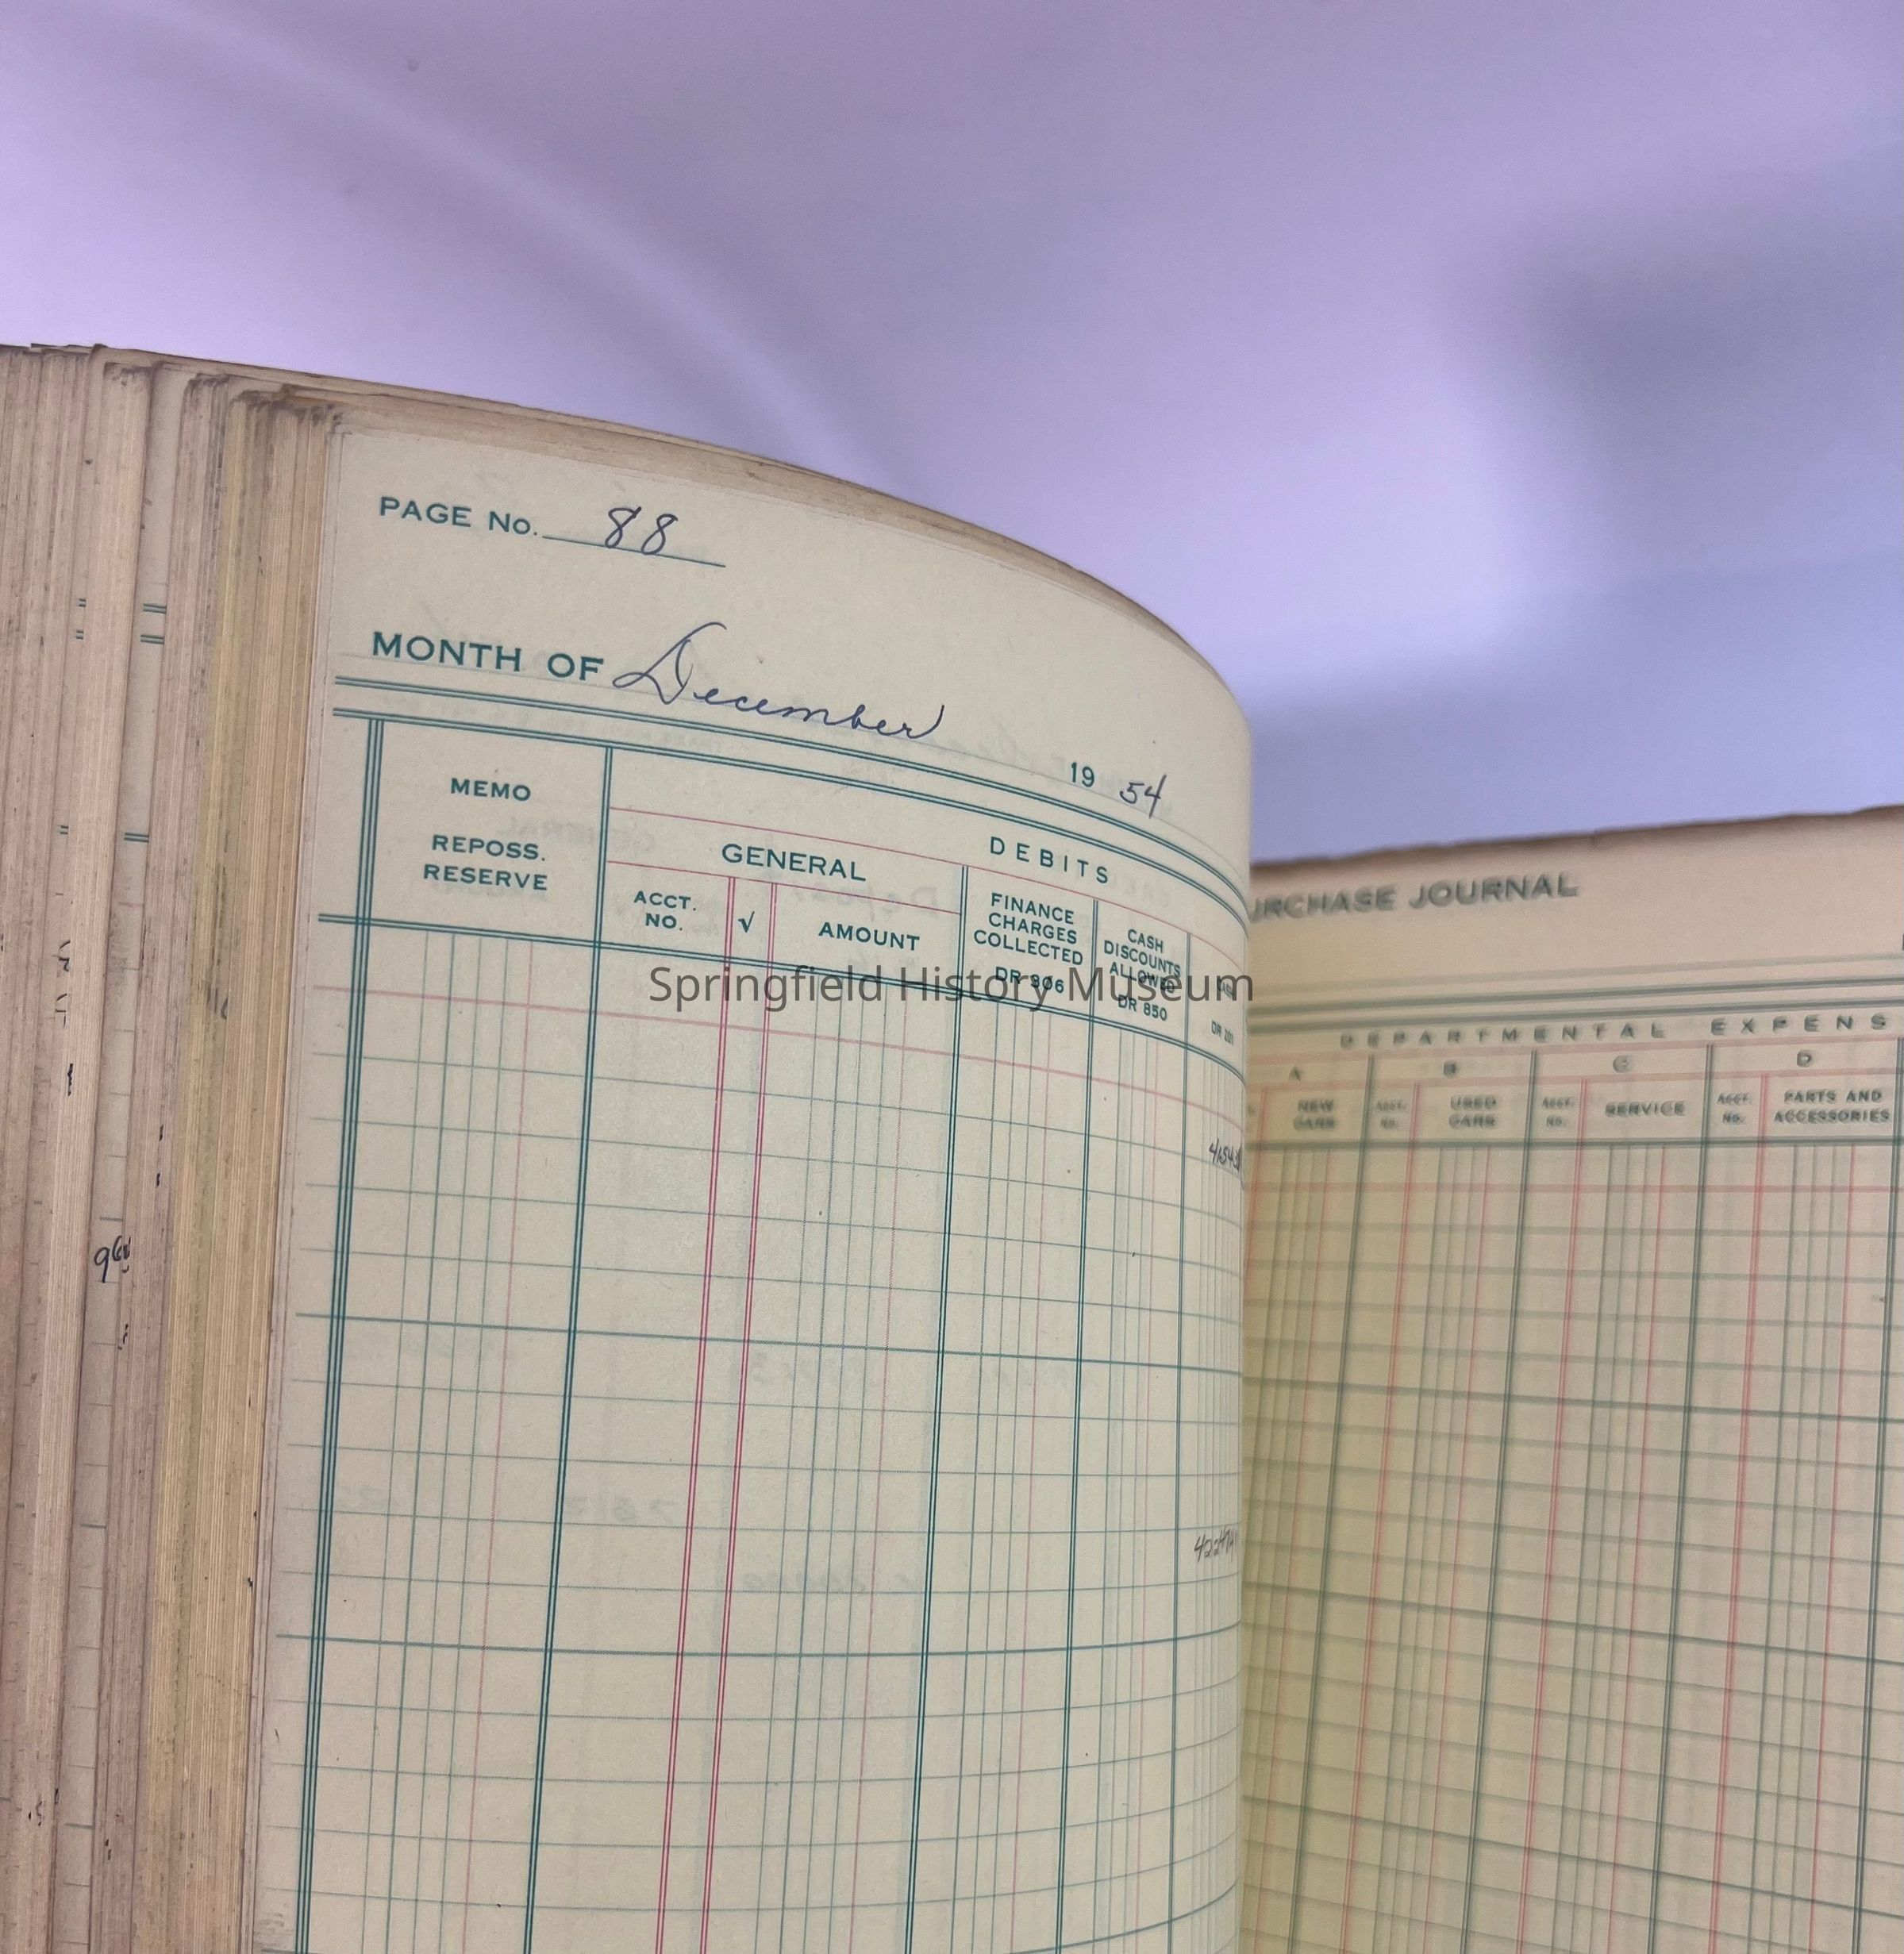 PAGE No. 88
MONTH OF December
19 54
MEMO
REPOSS.
RESERVE
DEBITS
GENERAL
ACCT.
NO.
√
AMOUNT
FINANCE
CHARGES
COLLECTED
DR 906
CASH
DISCOUNTS
ALLOWED
DR 850
DR 201
Springfield History Museum
URCHASE JOURNAL
DEPARTMENTAL EXPENS
A
B
C
D
NEW
CARS
ACCT.
No.
USED
CARS
ACCT.
No.
SERVICE
ACCT.
No.
PARTS AND
ACCESSORIES